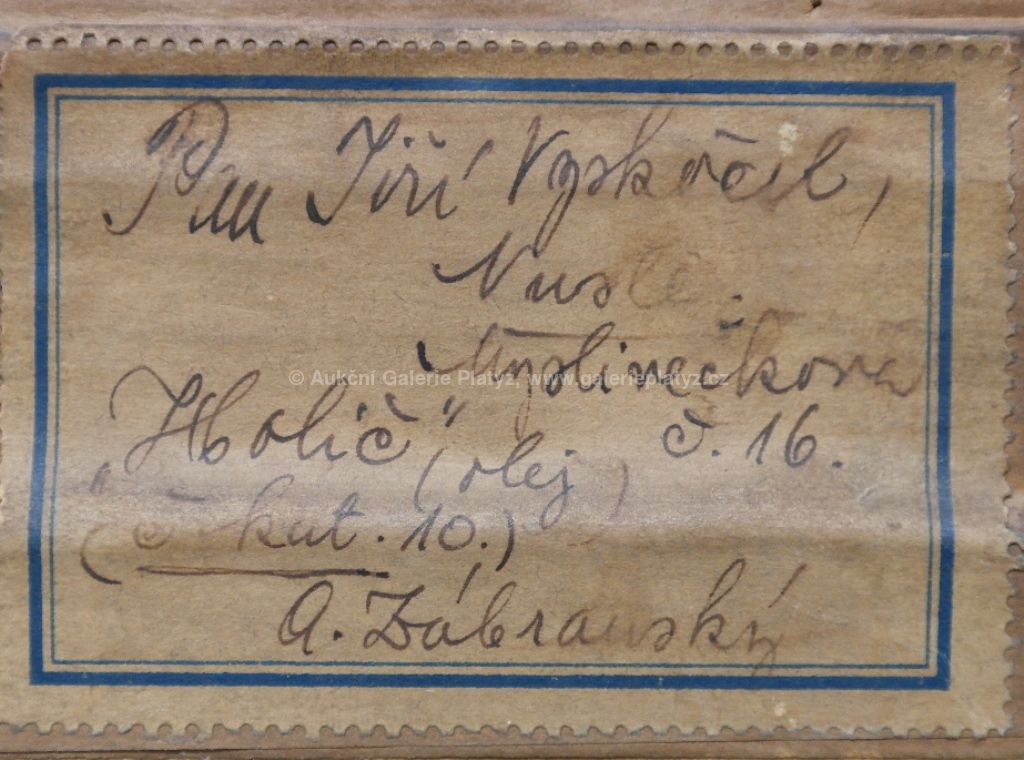 Pan Jiří Vyskočil,
Nusle.
Myslinečkova
© Aukční Galerie Platýz, www.galerieplatyz.cz
"Holič" č. 16.
(olej)
(č kat. 10.)
A. Zábranský